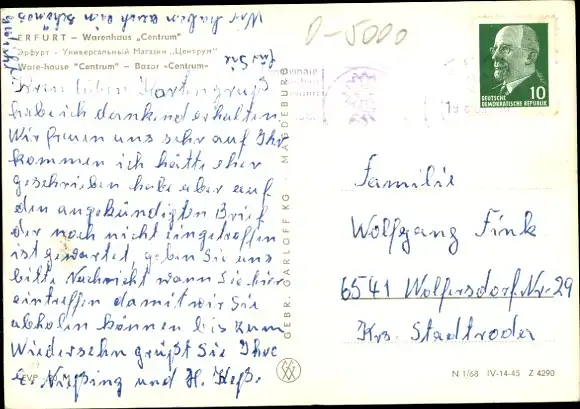 Wir haben auch ein schönes
für Sie
0-5000
ERFURT – Warenhaus „Centrum"
Эрфурт – Универсальный Магазин „Центрум"
Ware-house "Centrum" – Bazar «Centrum»
Ihren lieben Kartengruß
habe ich dankend erhalten
Wir freuen uns sehr auf Ihr
kommen ich hätte eher
geschrieben habe aber auf
den angekündigten Brief
der noch nicht eingetroffen
ist gewartet, geben Sie uns
bitte Nachricht wann Sie hier
eintreffen damit wir Sie
abholen können bis zum
Wiedersehn grüßt Sie Ihre
E. Nießing und H. Heß.
EVP
M
GEBR. GARLOFF KG · MAGDEBURG
10
DEUTSCHE
DEMOKRATISCHE REPUBLIK
Familie
Wolfgang Fink
6541 Wolfersdorf Nr. 29
Krs. Stadtroda
N 1/68 IV-14-45 Z 4290